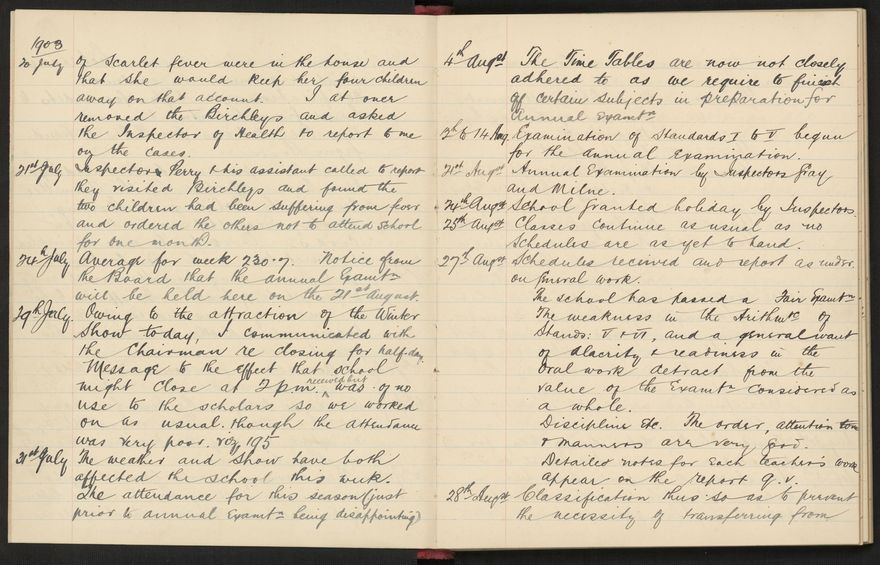 1903
20 July of Scarlet fever were in the house and
that she would keep her four children
away on that account. I at once
removed the Birchleys and asked
the Inspector of Health to report to me
on the cases.
21st July Inspector Perry & his assistant called to report
they visited Birchleys and found the
two children had been suffering from fever
and ordered the others not to attend school
for one month.
24th July Average for week 230.7. Notice from
the Board that the annual Examtn
will be held here on the 21st August.
29th July. Owing to the attraction of the Winter
Show today, I communicated with
the Chairman re closing for half-day.
Message to the effect that school
might close at 2 p.m. received but was of no
use to the scholars so we worked
on as usual though the attendance
was very poor. viz, 195
31st July The weather and Show have both
affected the school this week.
The attendance for this season (just
prior to annual Examtn being disappointing)
4th Augst The Time Tables are now not closely
adhered to as we require to finish
off certain subjects in preparation for
Annual Examtn
to 14 Aug Examination of Standards I to V begun
for the annual examination.
21st Augst Annual Examination by Inspectors Gray
and Milne.
24th Augst School granted holiday by Inspectors.
25th Augst Classes continue as usual as no
Schedules are as yet to hand.
27th Augst Schedules received and report as under
on general work.
The school has passed a Fair Examtn.
The weakness in the Arithmtc of
Stands: V & VI, and a general want
of alacrity & readiness in the
oral work detract from the
value of the Examtn considered as
a whole.
Discipline Etc. The order, attention
& manners are very good.
Detailed notes for each teacher's work
appear on the report q.v.
28th Augst Classification thus so as to prevent
the necessity of transferring from